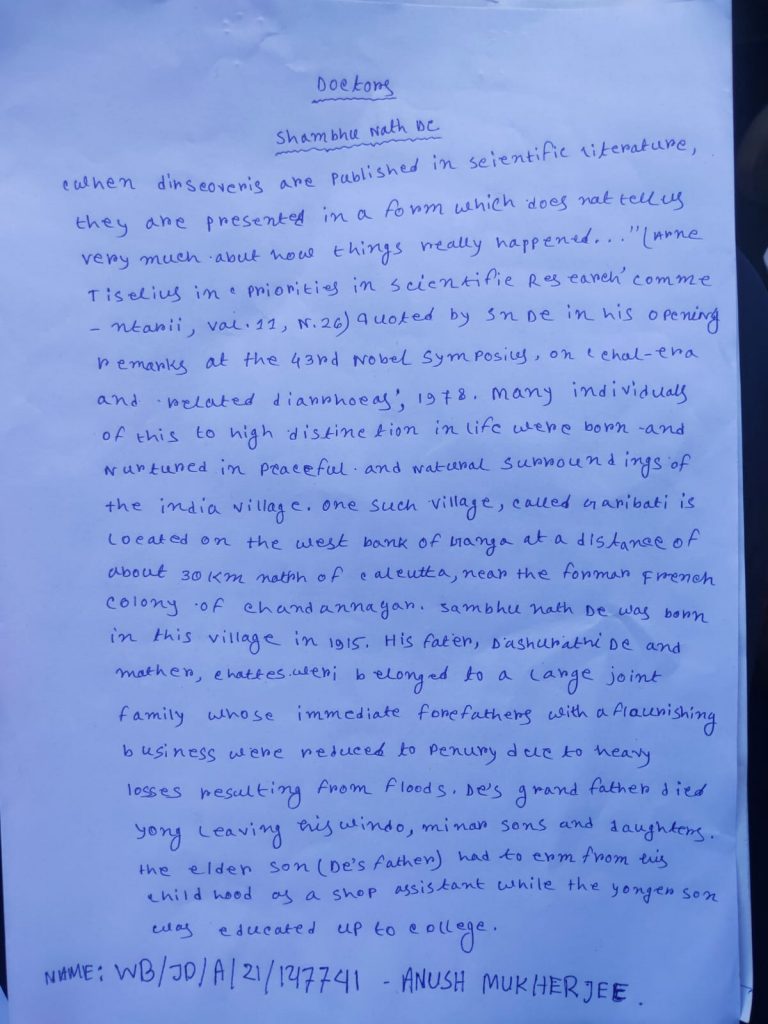 Doctors
Shambhu Nath De
"when dinseoveris are published in scientific literature,
they are presented in a form which does not tell us
very much abut how things really happened..." (Arne
Tiselius in 'priorities in scientific Research' comme
- ntarii, val. 11, N. 26) quoted by Sn De in his opening
remarks at the 43rd Nobel Symposius, on 'chal-era
and related diarrhoeas', 1978. Many individuals
of this to high distinction in life were born and
Nurtured in peaceful and natural surroundings of
the india village. one such village, called Garibati is
located on the west bank of Ganga at a distance of
about 30 Km nathh of calcutta, near the formar French
colony of chandannagar. Sambhu nath De was born
in this village in 1915. His fater, Dashurathi De and
mather, chattes.weri belonged to a large joint
family whose immediate forefathers with a flaurishing
business were reduced to penury due to heavy
losses resulting from floods. De's grand father died
yong leaving his windo, minar sons and daughters.
the elder son (De's father) had to erm from his
childhood as a shop assistant while the yonger son
was educated up to college.
NAME: WB/JD/A/21/147741 - ANUSH MUKHERJEE.